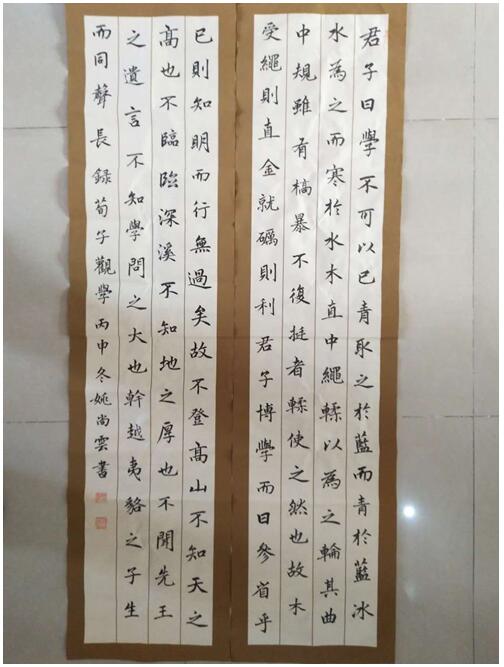 君子曰學不可以已青取之於藍而青於藍冰
水為之而寒於水木直中繩輮以為之輪其曲
中規雖有槁暴不復挺者輮使之然也故木
受繩則直金就礪則利君子博學而日參省乎
已則知明而行無過矣故不登高山不知天之
高也不臨臨深溪不知地之厚也不聞先王
之遺言不知學問之大也幹越夷貉之子生
而同聲長錄荀子觀學丙申冬姚尚雲書